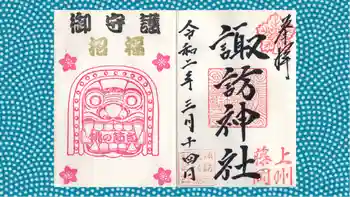 奉拝
上州
藤岡
諏訪神社
令和二年三月十四日
御守護
招福